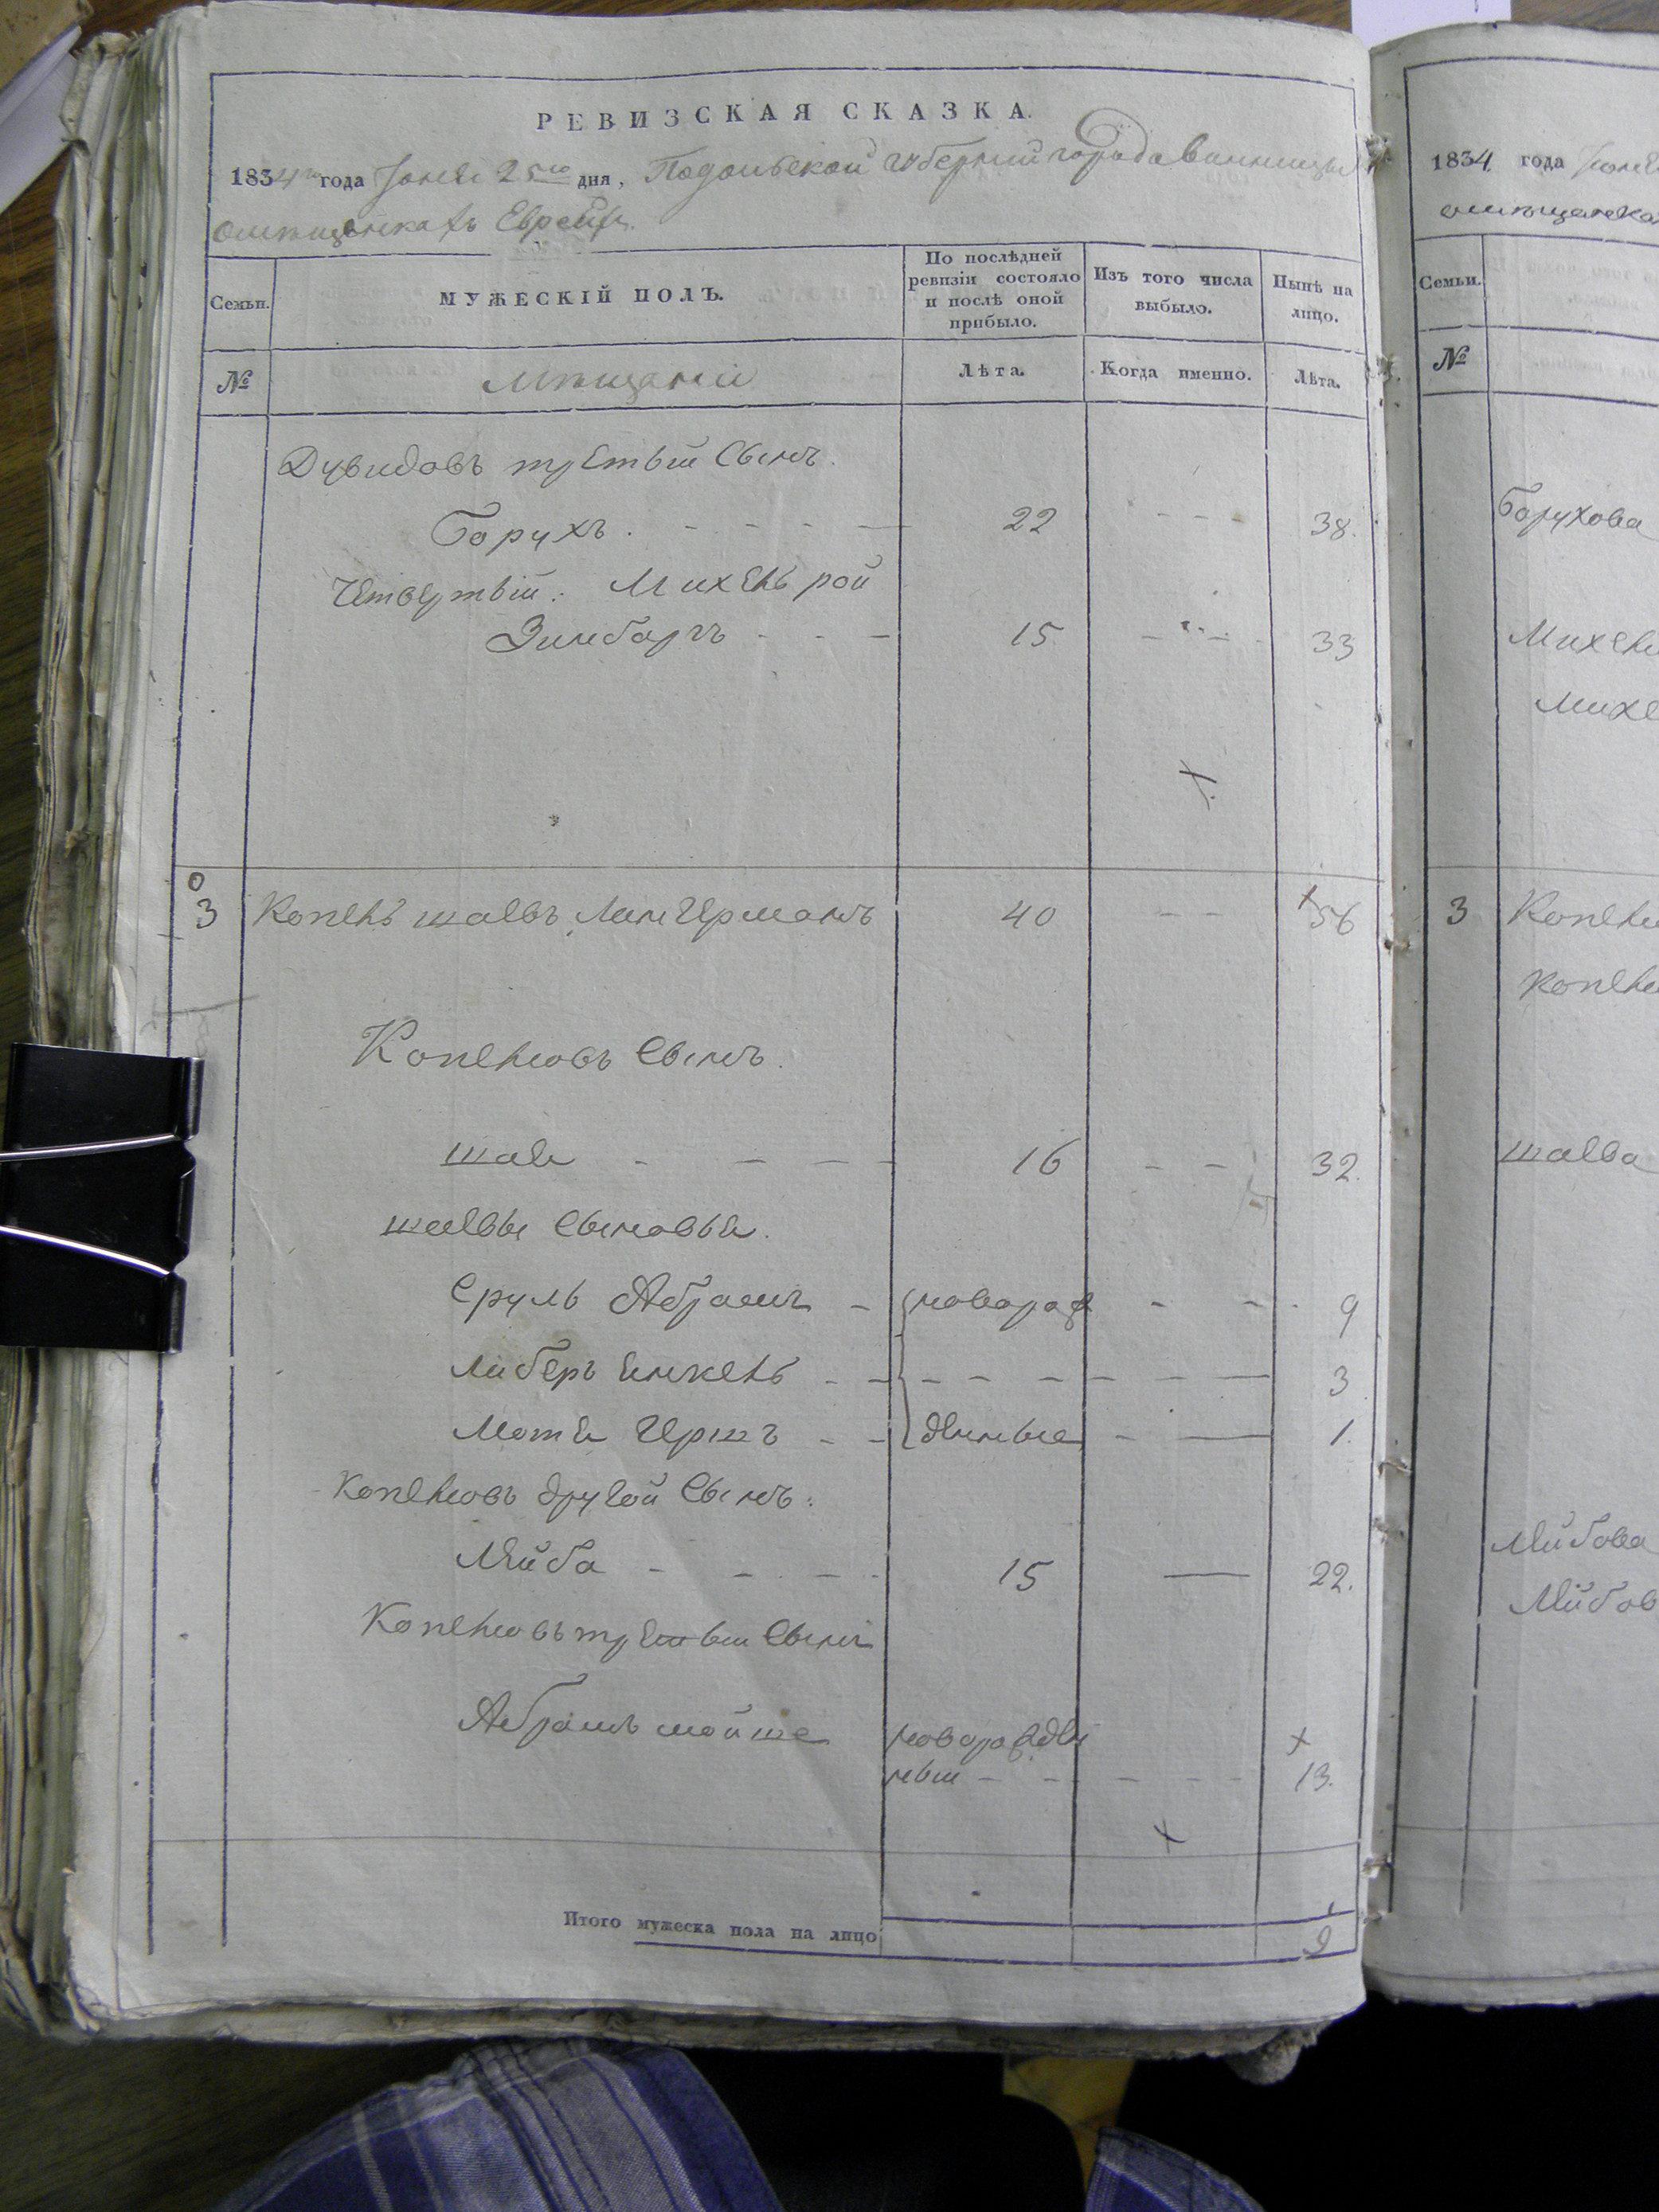 РЕВИЗСКАЯ СКАЗКА.
1834го года Іюня 25го дня, Подольской губерній города Винницы
о мѣщанкахъ Евреяхъ.
Семьи.
МУЖЕСКІЙ ПОЛЪ.
По послѣдней ревизіи состояло и послѣ оной прибыло.
Изъ того числа выбыло.
Нынѣ на лицо.
№
Мѣщаній
Лѣта.
Когда именно.
Лѣта.
Дувидовъ третьій Сынъ.
Борухъ. - - - - 22 - - - 38.
Четвертьій: Михель рой
Зинбаргъ - - - 15 - - - 33
×
0
3 Копель шаевъ Линчерманъ 40 - - × 56
Копелювъ Сынъ.
шая - - - - 16 - - 32.
шаевы Сыновья.
Сруль Абрамъ - новорож - - 9
Либеръ Янкель - - - - - - - 3
Мотя Гершъ - - дѣнные - — 1.
Копелювъ другой Сынъ:
Лейба - - - - 15 — 22.
Копелювъ третьій Сынъ
Абрамъ мойше новорождѣ ×
ный - - - - 13.
×
Итого мужеска пола на лицо 9
1834 года Іюня
о мѣщанска
Семьи.
№
Борухова
Михел
Михе
3 Копелю
Копелю
шаева
Лейбова
Лейбов